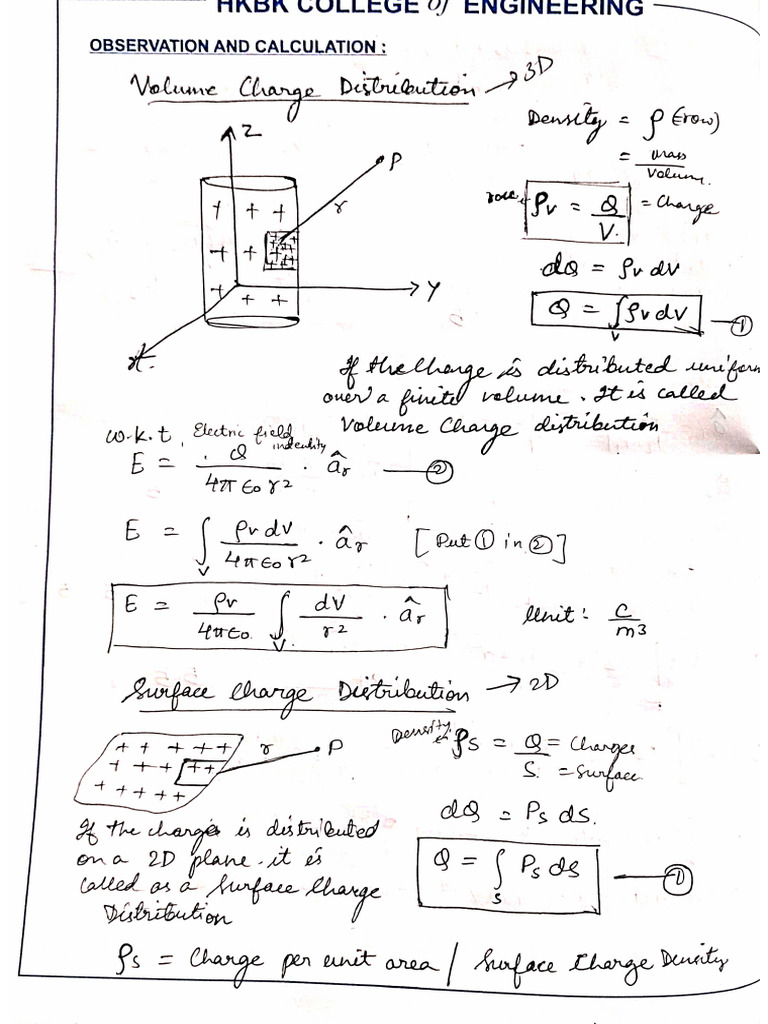 HKBK COLLEGE of ENGINEERING
OBSERVATION AND CALCULATION :
Volume Charge Distribution → 3D
Z
P
r
Y
x
+ + +
+ +
+
+ +
Density = ρ (row)
= mass / Volume.
ρv = Q / V. = Charge
dQ = ρv dV
Q = ∫v ρv dV — ①
If the Charge is distributed uniform
over a finite volume. It is called
Volume Charge distribution
w.k.t, Electric field
indensity
E = Q / 4π ε0 r² . âr — ②
E = ∫v ρv dV / 4π ε0 r² . âr [Put ① in ②]
E = ρv / 4π ε0 ∫v dV / r² . âr
Unit: C / m3
Surface Charge Distribution → 2D
+ + + + +
+ + + + +
+ + + + +
r
P
Density ρs = Q / S. = Charges
= Surface
dQ = Ps ds.
Q = ∫s Ps ds — ①
If the charges is distributed
on a 2D plane. it is
called as a Surface Charge
Distribution
ρs = Charge per unit area / Surface Charge Density